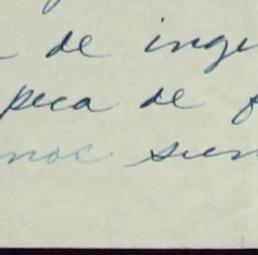 de inge
peca de f
noc sien